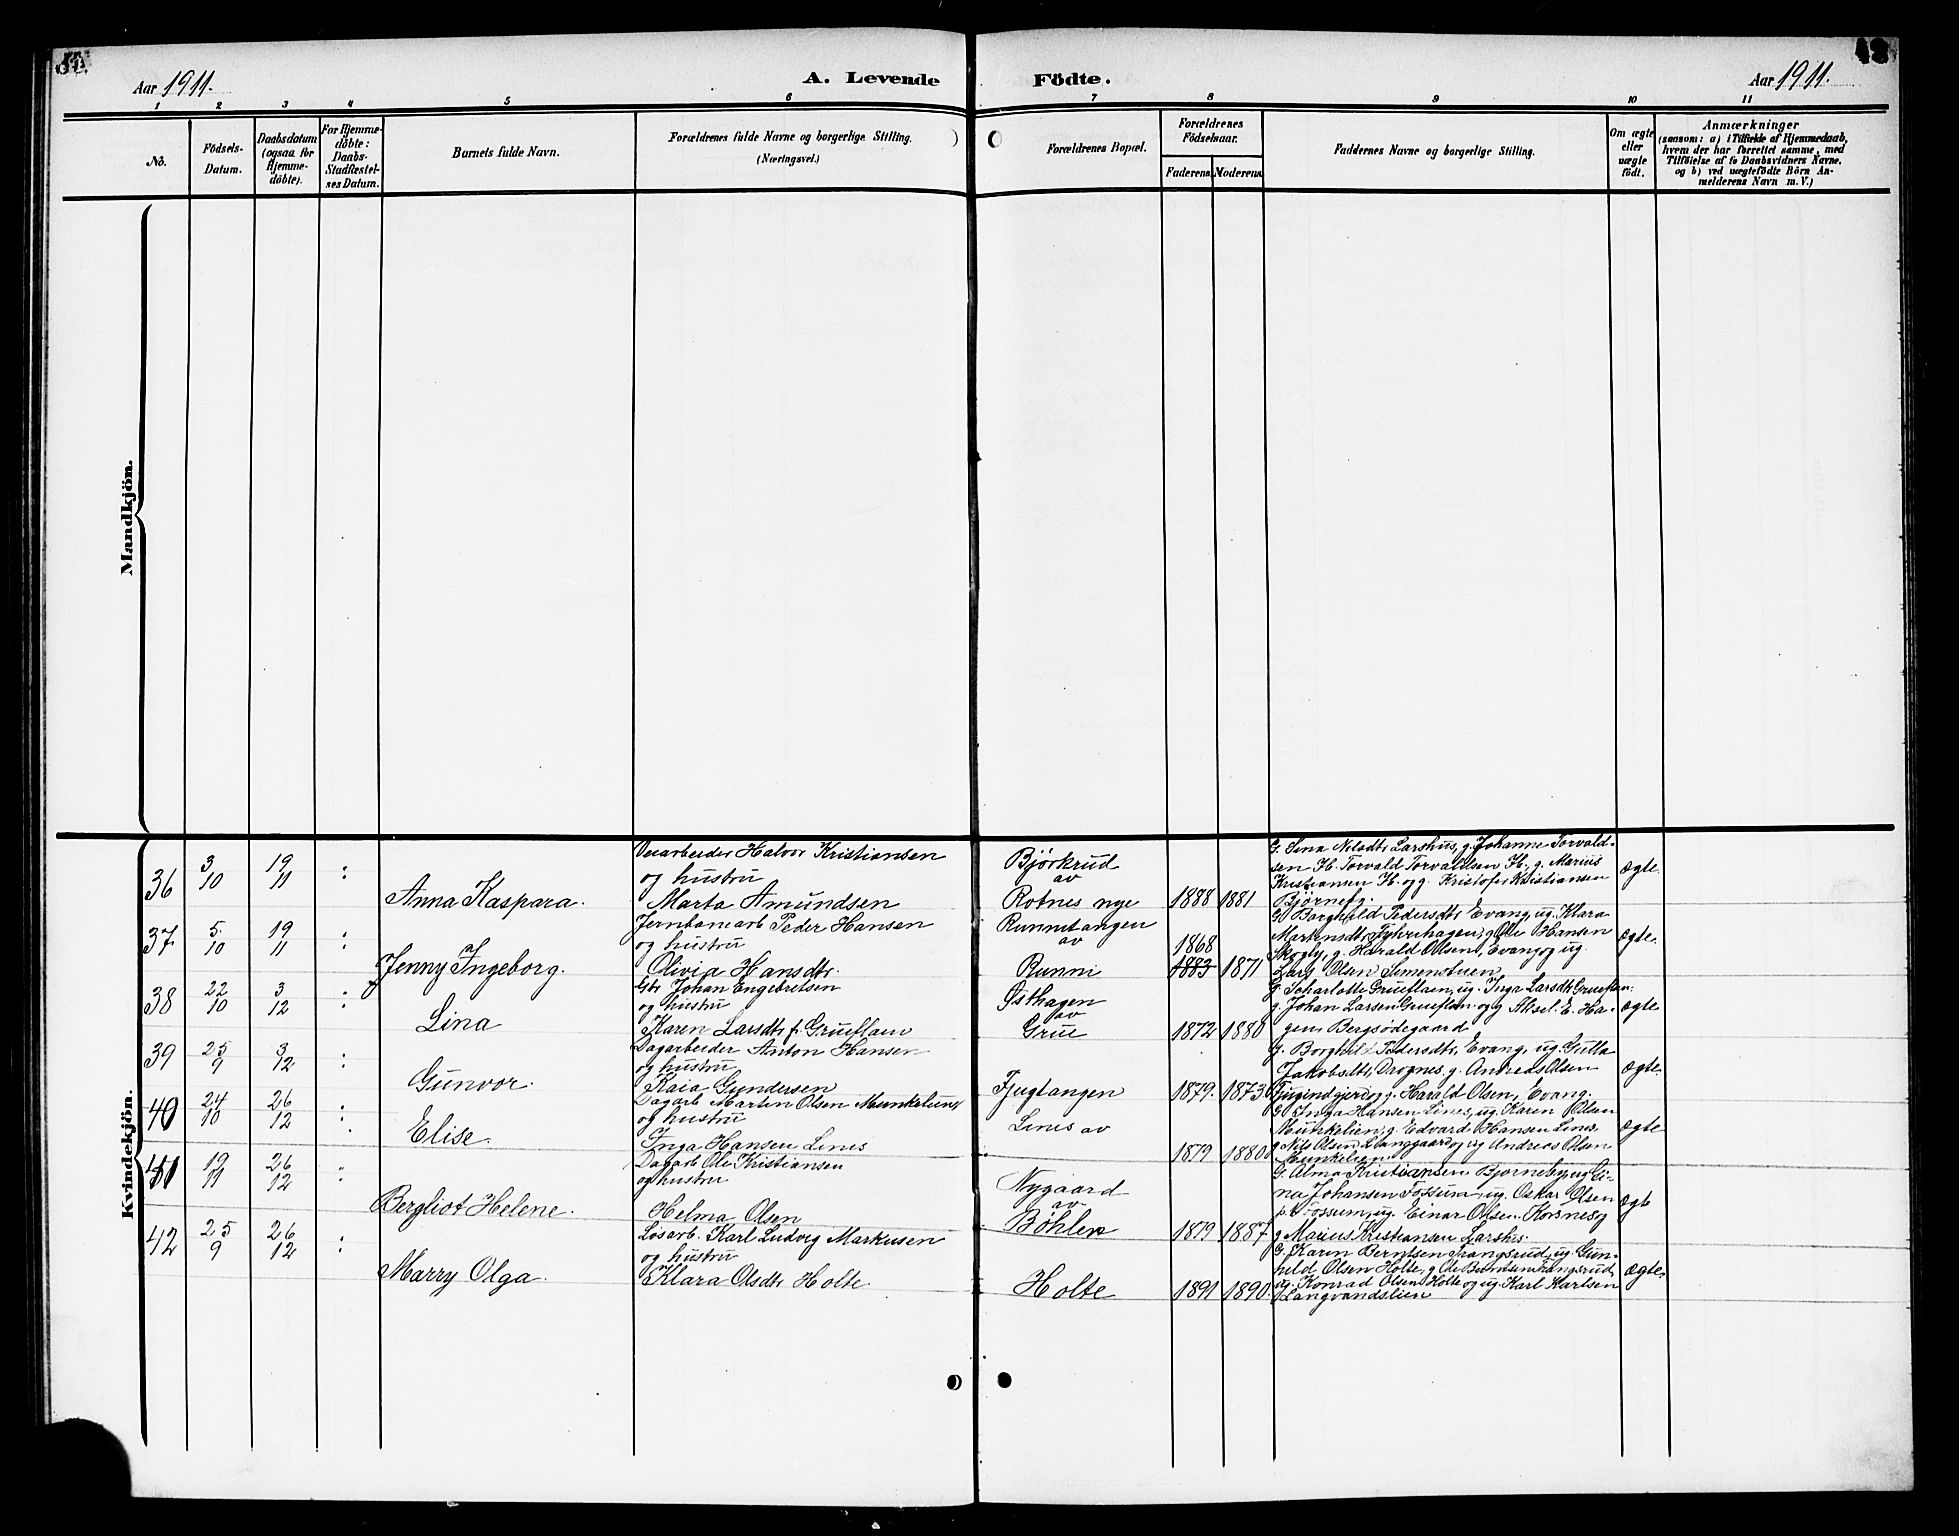 43
Aar 1911.
A. Levende Födte.
Aar 1911.
1 2 3 4 5 6 7 8 9 10 11
No.
Födsels-Datum.
Daabsdatum (ogsaa for Hjemme-döbte).
For Hjemme-döbte: Daabs-Stadfæstel-ses Datum.
Barnets fulde Navn.
Forældrenes fulde Navne og borgerlige Stilling.
(Næringsvei.)
Forældrenes Bopæl.
Forældrenes Födselsaar.
Faderens. Moderens.
Faddernes Navne og borgerlige Stilling.
Om ægte eller uægte födt.
Anmærkninger
(saasom: a) i Tilfælde af Hjemmedaab,
hvem der har forrettet samme, med
Tilföielse af to Daabsvidners Navne.
og b) ved uægtefödte Börn An-
melderens Navn m. V.)
Mandkjön.
Kvindekjön.
36 3/10 19/11 : Anna Kaspara.
Halvor Kristiansen
og hustru
Marta Amundsen
Bjørkrud
av
Rotnes nye
1888 1881
Larshus, g. Johanne Torvald-
sen H. Torvald Torvaldsen H., g. Marius
Kristiansen H. og g. Kristofer Kristiansen
ægte
37 5/10 19/11 : Jenny Ingeborg.
Jernbanearb Peder Hansen
og hustru
Olivia Hansdtr.
av
Runni
1868
1883 1871
G Borghild Pedersdtr, Evang, ug. Klara
g. Ole Hansen
Skogly, g. Harald Olsen, Evang og ug
Lars Olsen Simenstuen
ægte.
38 22/10 3/12 : Lina
Gbr Johan Engebretsen
og hustru
Karen Larsdtr f. Grueflaen
Østhagen
av
Grue
1872 1880
Grueflaen, ug. Inga Larsdtr Grueflaen
g. Johan Larsen Grueflaen og g Aksel E. Ha-
gen Bergsødegaard
ægte
39 25/9 3/12 : Gunvor.
Dagarbeider Anton Hansen
og hustru
Kaia Gundersen
Fjugtangen
1879. 1873
g. Borghild Pedersdtr, Evang, ug Gulla
Jakobsdtr, Drognes, g. Andreas Olsen
g. Harald Olsen, Evang.
ægte.
40 24/10 26/12 : Elise.
Dagarb Martin Olsen Munkelien
og hustru
Inga Hansen Lines
Lines av
1879 1880
G Inga Hansen Lines, ug. Karen Olsen
Munkelien, g. Edvard Hansen Lines,
g Nils Olsen Langgaard og ug Andreas Olsen
Munkelien
ægte
41 19/11 26/12 : Bergliot Helene.
Dagarb Ole Kristiansen
og hustru
Helma Olsen
Nygaard
av
Bøhler
1879 1887
G. Alma Kristiansen Bjørneby, ug Gi-
na Johansen Fossum, ug. Oskar Olsen
Fossum, ug. Einar Olsen Korsnes g
g Marius Kristiansen Larshus.
ægte
42 25/9 26/12 : Marry Olga.
Løsarb. Karl Ludvig Markusen
og hustru
Klara Olsdtr Holte.
Holte
1891 1890.
G. Karen Berntsen Trangsrud, ug. Gun-
hild Olsen Holte, g Ole Berntsen Trangsrud,
ug. Konrad Olsen Holte og ug. Karl Karlsen
Langvandslien
ægte.